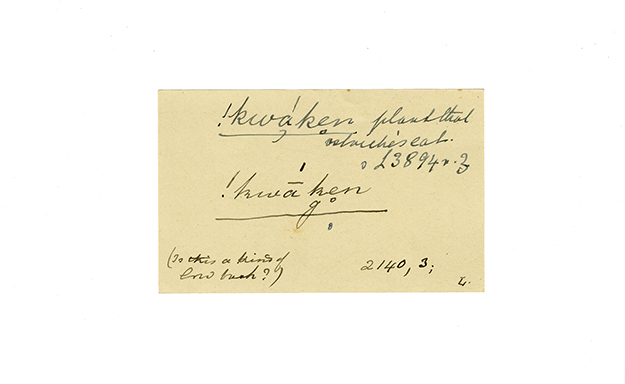 !kwá̱ken plant that
ostriches eat.
L3894 v.
!kwā́ken
(Is this a kind of
low bush?)
2140, 3;
L.